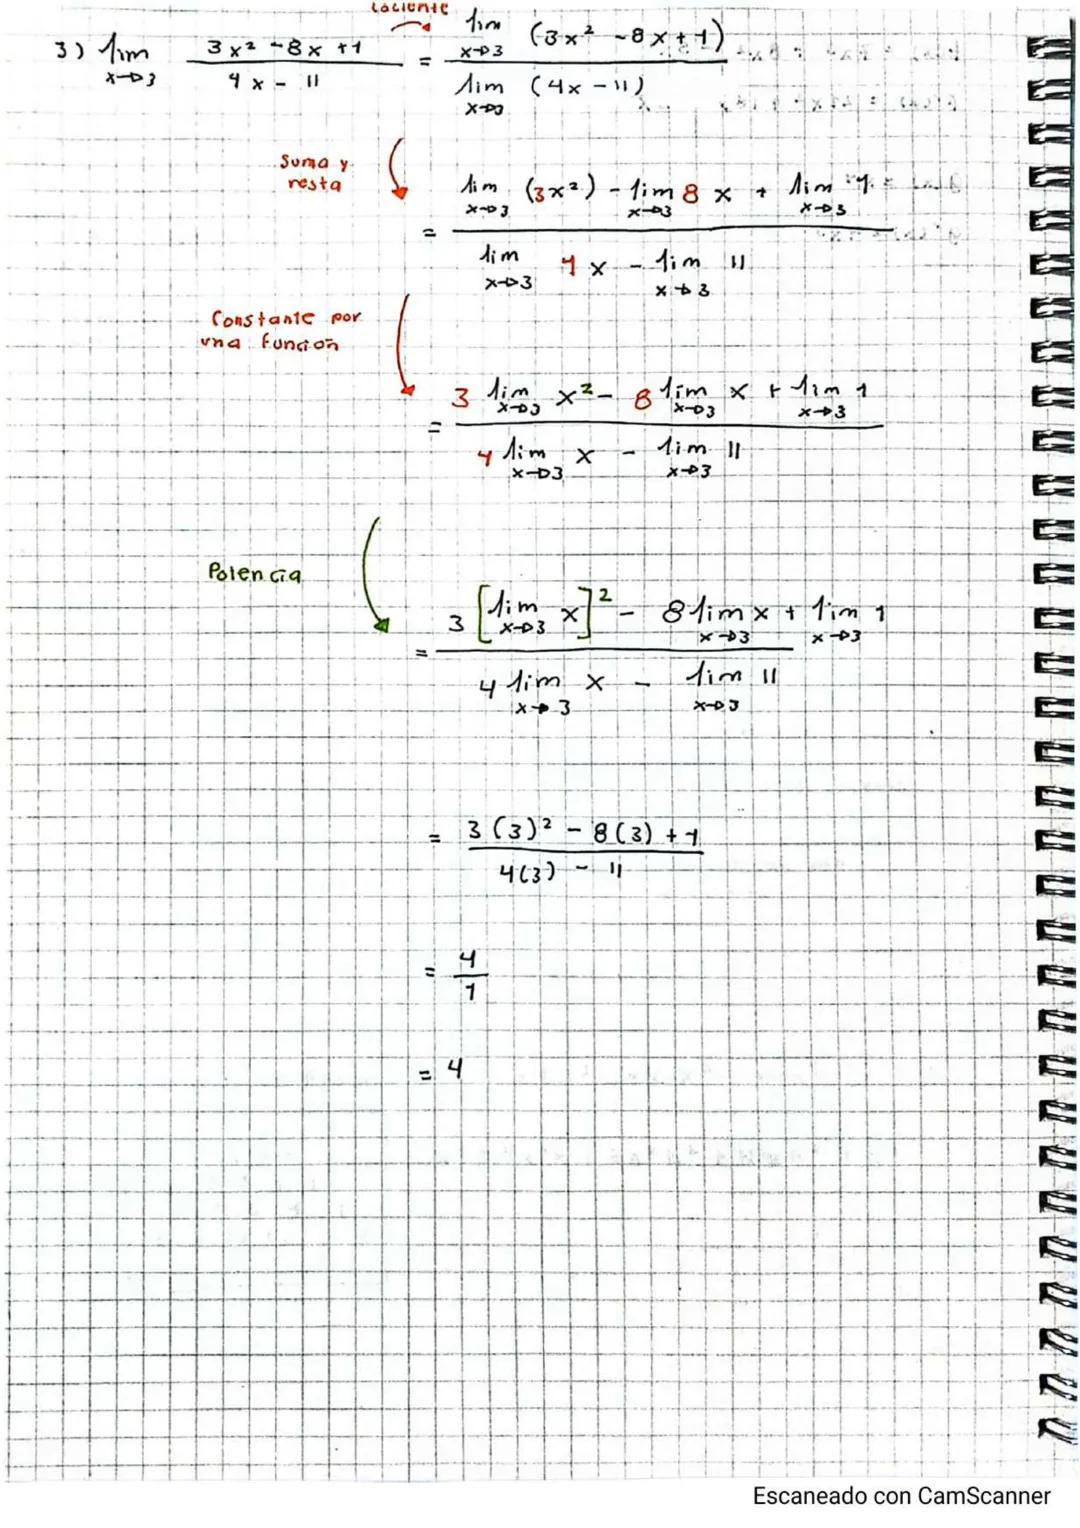 Cociente
3) lim x→3 3x² -8x +1 / 4x - 11 = lim x→3 (3x² -8x+1) / lim x→3 (4x -11)
Suma y
resta
= lim x→3 (3x²) - lim x→3 8x + lim x→3 1 / lim x→3 4x - lim x→3 11
Constante por
una función
= 3 lim x→3 x² - 8 lim x→3 x + lim x→3 1 / 4 lim x→3 x - lim x→3 11
Potencia
= 3 [lim x→3 x]² - 8 lim x→3 x + lim x→3 1 / 4 lim x→3 x - lim x→3 11
= 3(3)² - 8(3) + 1 / 4(3) - 11
= 4 / 1
= 4
Escaneado con CamScanner